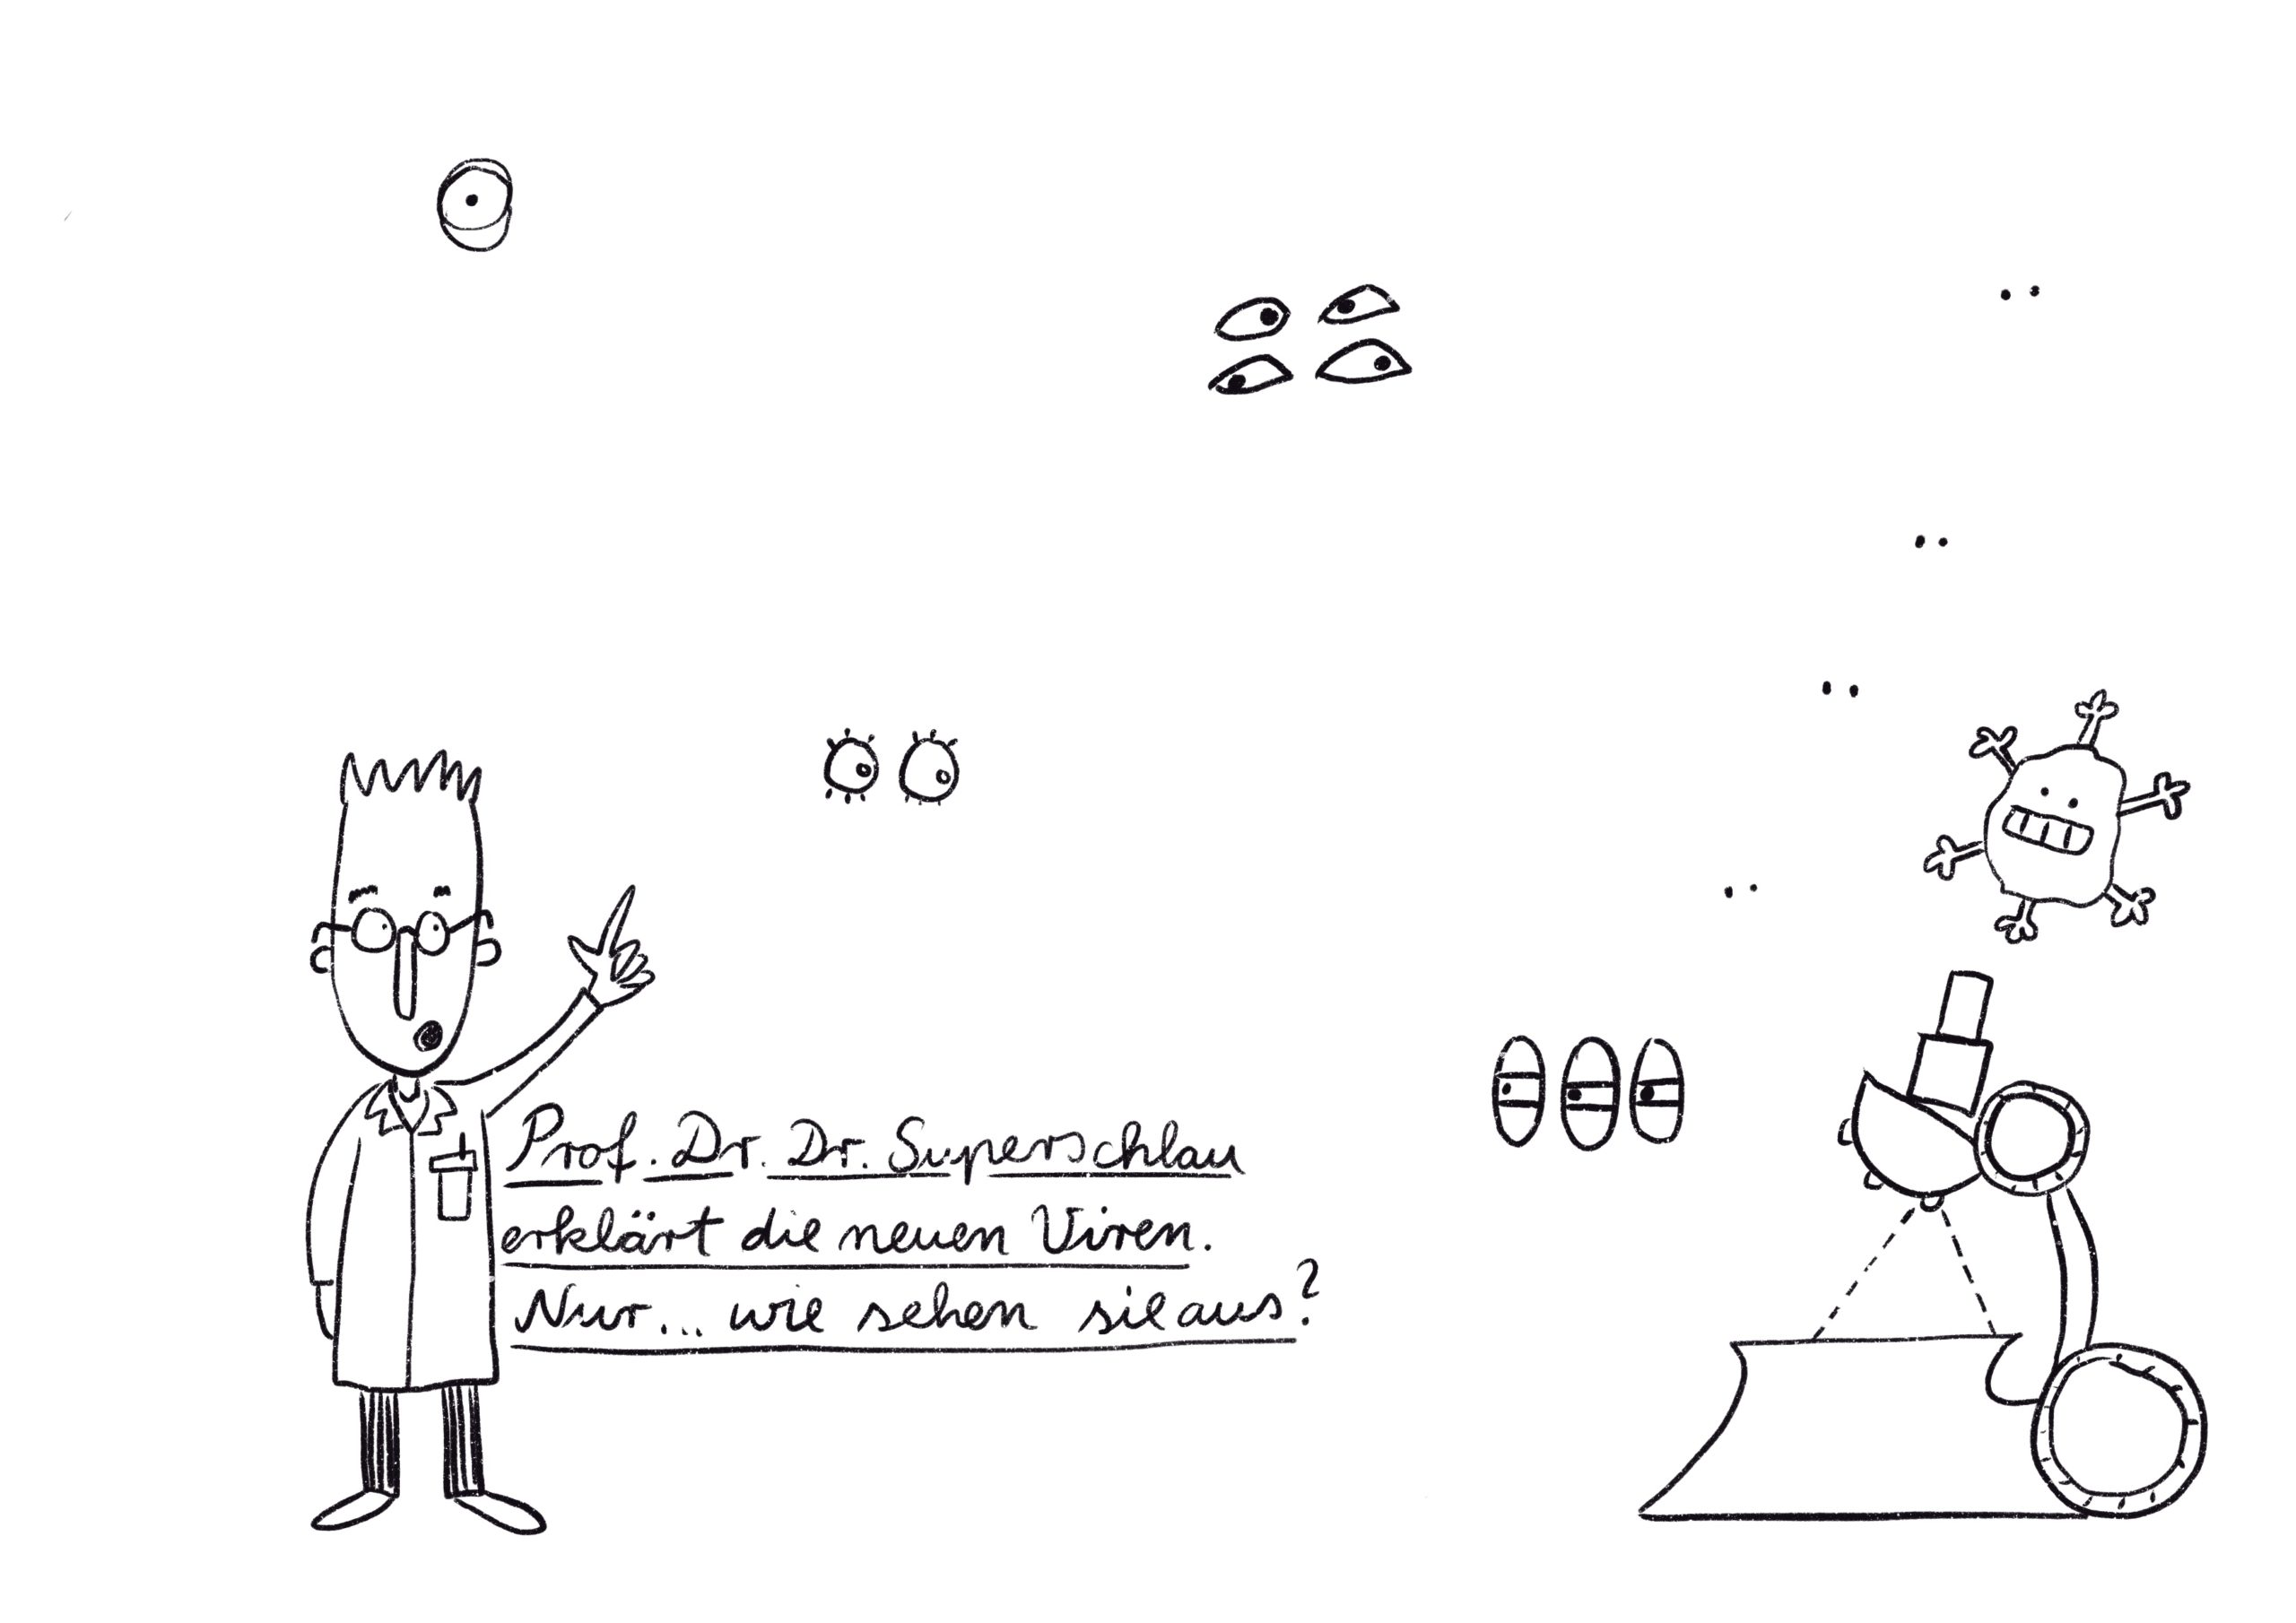 Prof. Dr. Dr. Superschlau
erklärt die neuen Viren.
Nur... wie sehen sie aus?